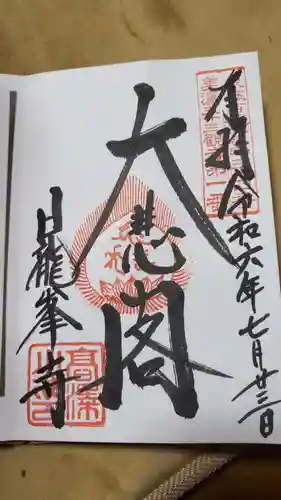 奉拝
令和六年七月廿三日
大悲閣
日龍峯寺
美濃三十三観音第一番
高澤